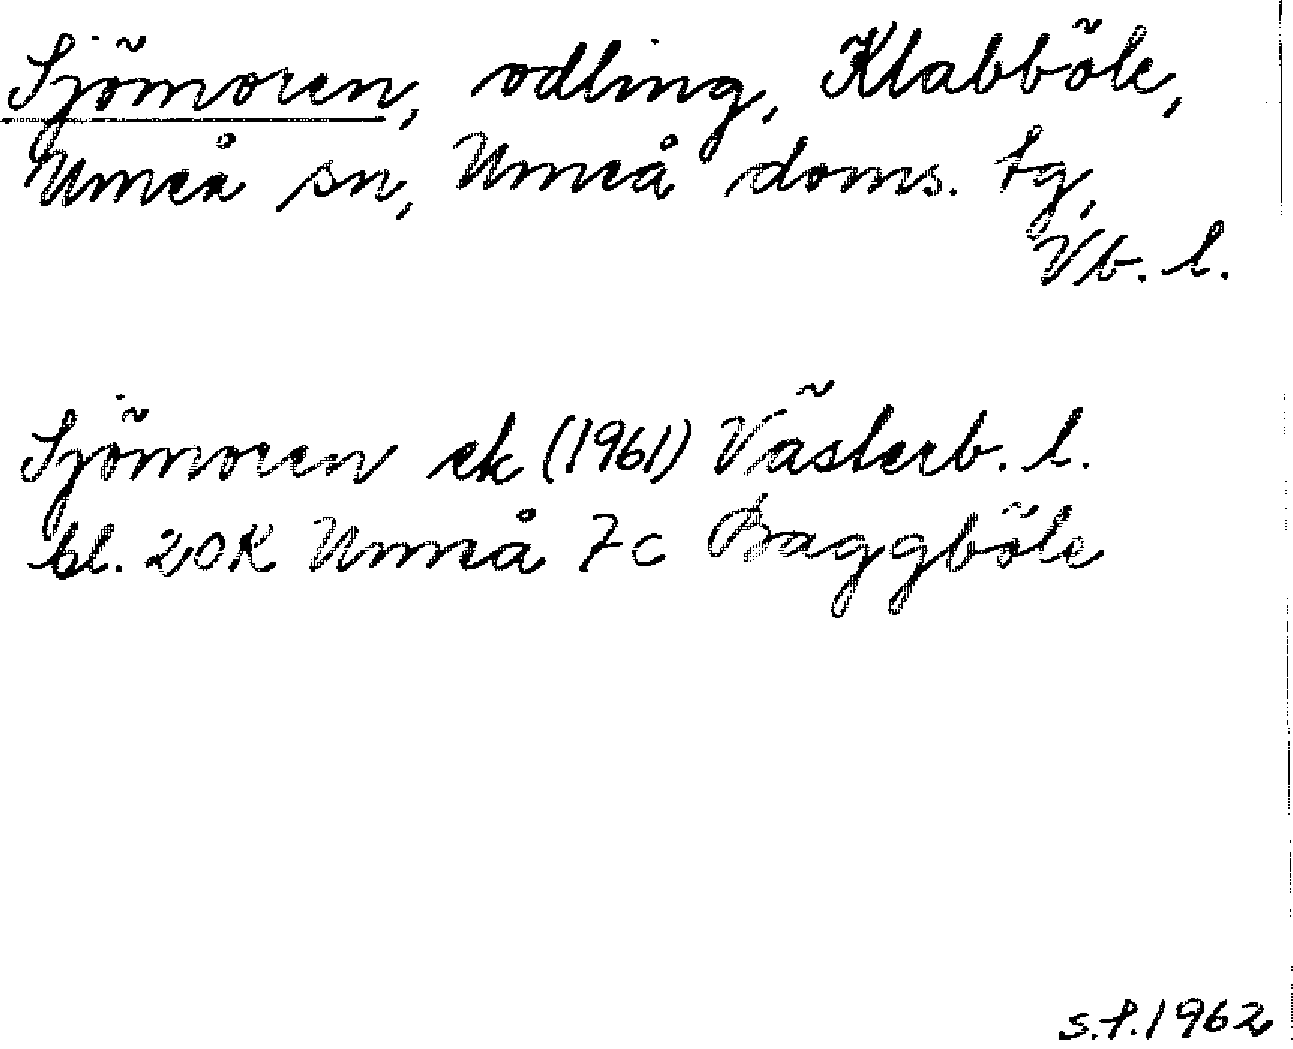 Sjömoren, odling, Klabböle,
Umeå sn, Umeå doms. tg,
Vb. l.
Sjömoren ek (1961) Västerb. l.
bl. 20K Umeå 7c Baggböle
s.f. 1962